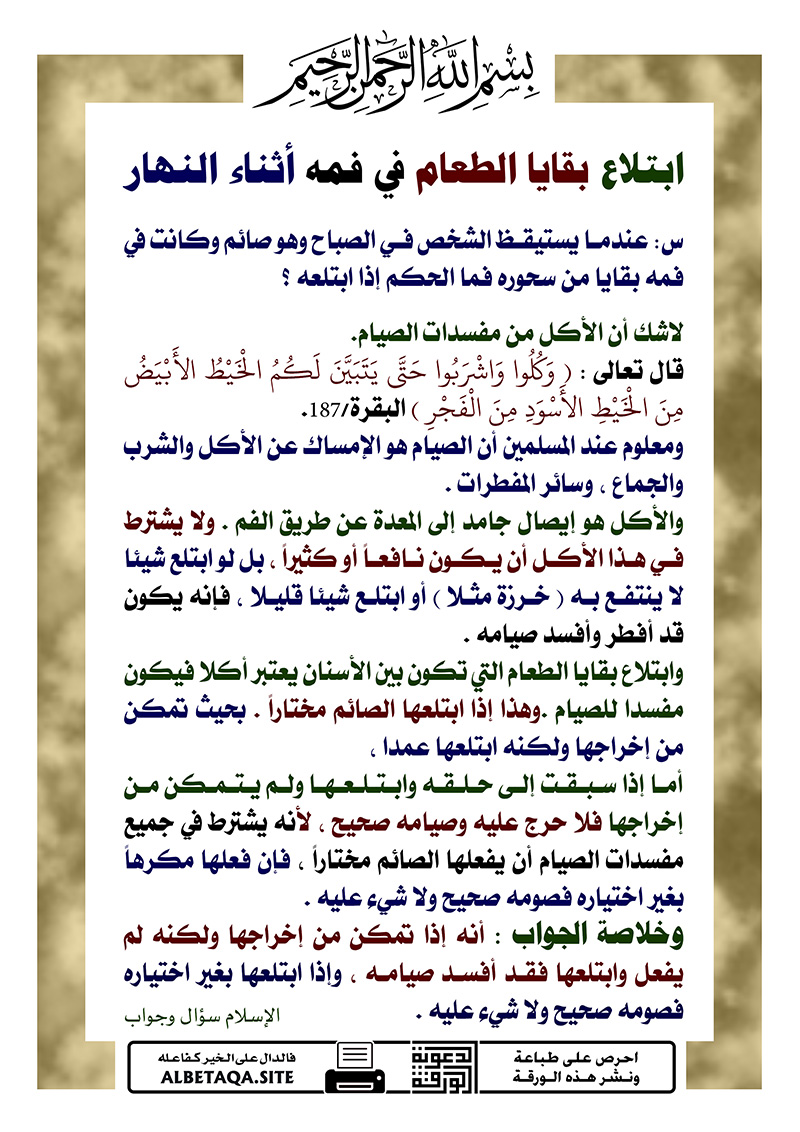 بِسْمِ اللَّهِ الرَّحْمَنِ الرَّحِيمِ
ابتلاع بقايا الطعام في فمه أثناء النهار
س: عندما يستيقظ الشخص في الصباح وهو صائم وكانت في
فمه بقايا من سحوره فما الحكم إذا ابتلعه ؟
لاشك أن الأكل من مفسدات الصيام.
قال تعالى : ( وَكُلُوا وَاشْرَبُوا حَتَّى يَتَبَيَّنَ لَكُمُ الْخَيْطُ الأَبْيَضُ
مِنَ الْخَيْطِ الأَسْوَدِ مِنَ الْفَجْرِ ) البقرة/187.
ومعلوم عند المسلمين أن الصيام هو الإمساك عن الأكل والشرب
والجماع ، وسائر المفطرات .
والأكل هو إيصال جامد إلى المعدة عن طريق الفم . ولا يشترط
في هذا الأكل أن يكون نافعاً أو كثيراً ، بل لو ابتلع شيئا
لا ينتفع به ( خرزة مثلا ) أو ابتلع شيئا قليلا ، فإنه يكون
قد أفطر وأفسد صيامه .
وابتلاع بقايا الطعام التي تكون بين الأسنان يعتبر أكلا فيكون
مفسدا للصيام .وهذا إذا ابتلعها الصائم مختاراً . بحيث تمكن
من إخراجها ولكنه ابتلعها عمدا ،
أما إذا سبقت إلى حلقه وابتلعها ولم يتمكن من
إخراجها فلا حرج عليه وصيامه صحيح ، لأنه يشترط في جميع
مفسدات الصيام أن يفعلها الصائم مختاراً ، فإن فعلها مكرهاً
بغير اختياره فصومه صحيح ولا شيء عليه .
وخلاصة الجواب : أنه إذا تمكن من إخراجها ولكنه لم
يفعل وابتلعها فقد أفسد صيامه ، وإذا ابتلعها بغير اختياره
فصومه صحيح ولا شيء عليه .
الإسلام سؤال وجواب
احرص على طباعة
ونشر هذه الورقة
الدعوية
الورقة
فالدال على الخير كفاعله
ALBETAQA.SITE